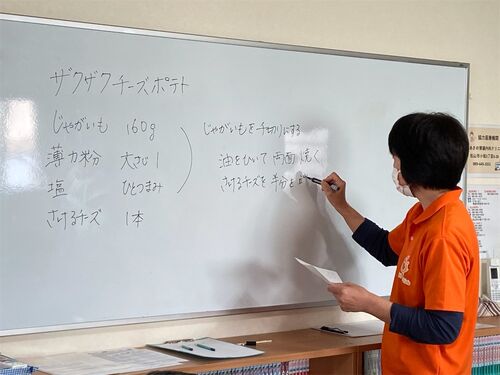 ザクザクチーズポテト
じゃがいも 160g
薄力粉 大さじ1
塩 ひとつまみ
さけるチーズ 1本
じゃがいもを千切りにする
油をひいて両面焼く
さけるチーズを半分と
協力医療機関